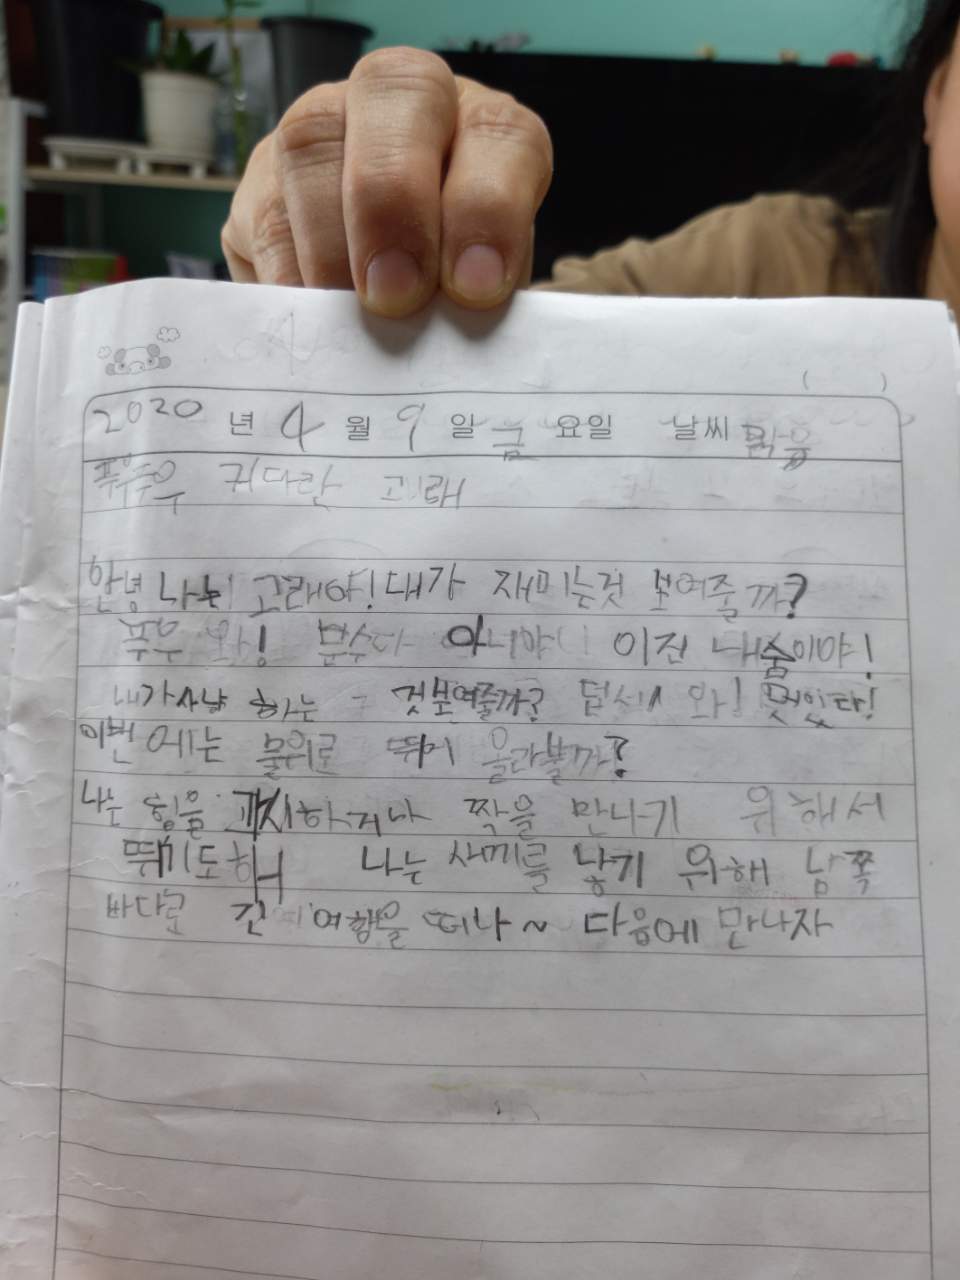 2020 년 4 월 9 일 금 요일 날씨 맑음
푸우우 커다란 고래
안녕 나는 고래야! 내가 재미는것 보여줄까?
푸우 와! 분수다 아니야 이건 내숨이야!
내가사냥 하는 것보여줄까? 덥석 와! 멋있다!
이번에는 물위로 뛰어 올라볼까?
나는 힘을 과시하거나 짝을 만나기 위해서
뛰기도해 나는 새끼를 낳기 위해 남쪽
바다로 긴 여행을 떠나~ 다음에 만나자